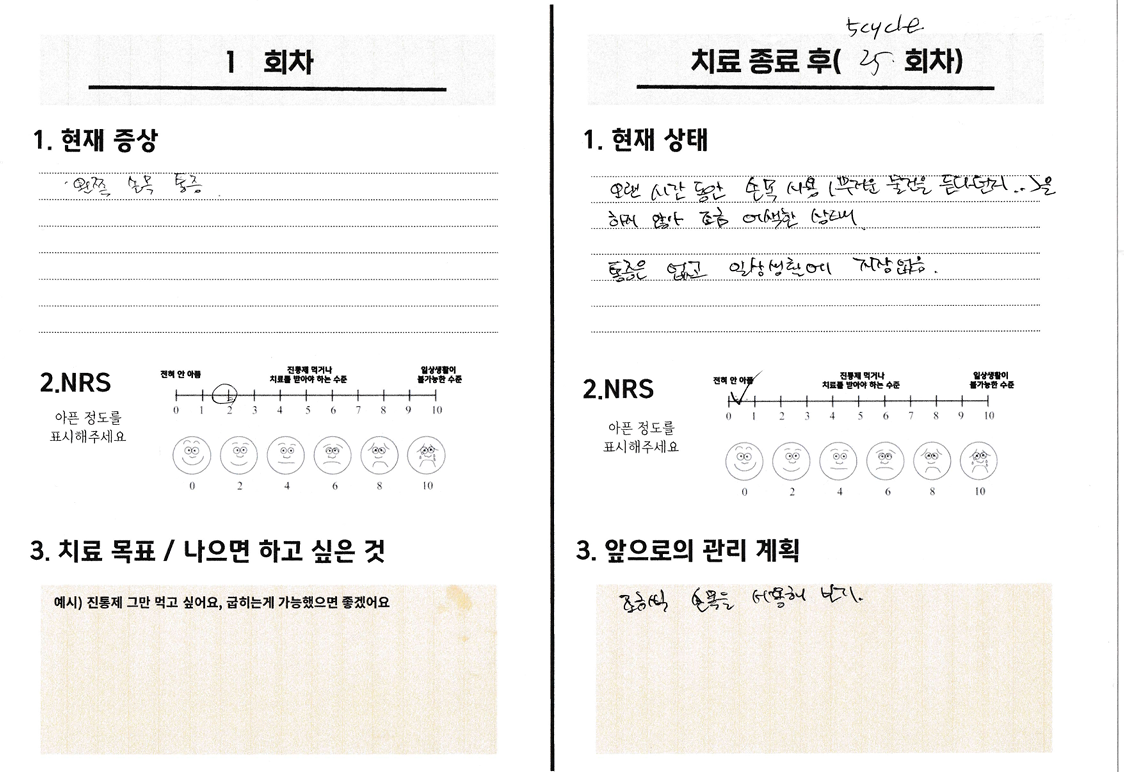 1 회차
1. 현재 증상
· 왼쪽 손목 통증.
2.NRS
아픈 정도를
표시해주세요
전혀 안 아픔
진통제 먹거나
치료를 받아야 하는 수준
일상생활이
불가능한 수준
0 1 2 3 4 5 6 7 8 9 10
0 2 4 6 8 10
3. 치료 목표 / 나으면 하고 싶은 것
예시) 진통제 그만 먹고 싶어요, 굽히는게 가능했으면 좋겠어요
5cycle
치료 종료 후( 25. 회차)
1. 현재 상태
오랜 시간 동안 손목 사용 (무거운 물건을 든다던지..)을
하지 않아 조금 어색한 상태.
통증은 없고 일상생활에 지장없음.
2.NRS
아픈 정도를
표시해주세요
전혀 안 아픔
진통제 먹거나
치료를 받아야 하는 수준
일상생활이
불가능한 수준
0 1 2 3 4 5 6 7 8 9 10
0 2 4 6 8 10
3. 앞으로의 관리 계획
조금씩 손목을 사용해 보기.